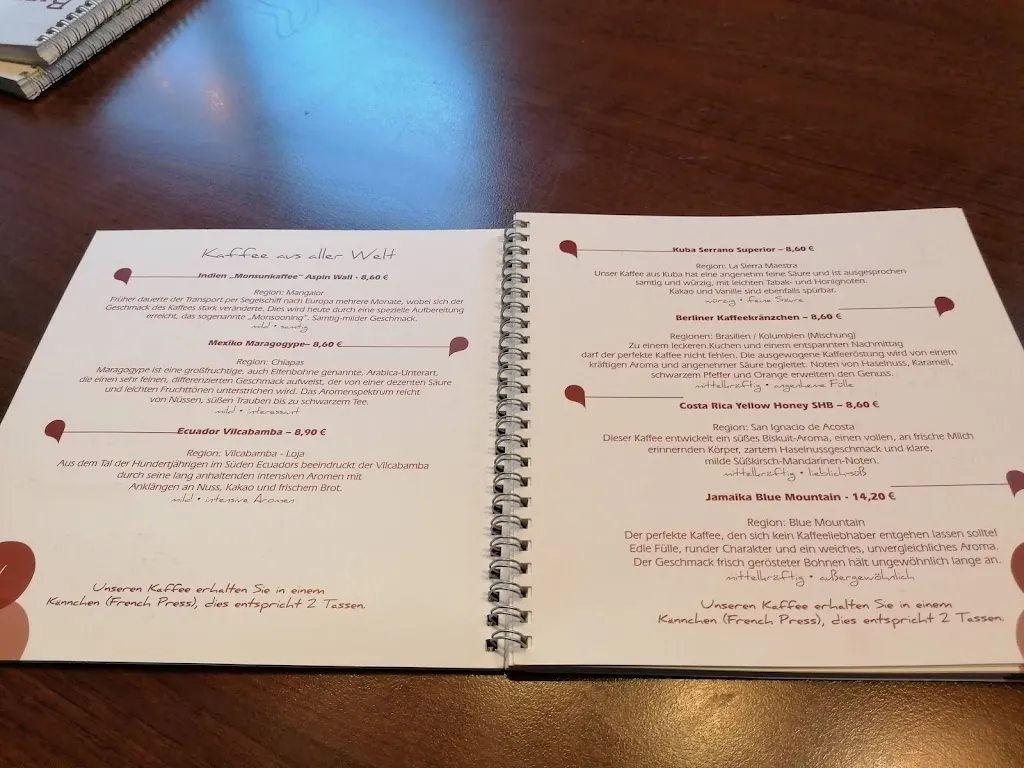 Kaffee aus aller Welt
Indien „Monsunkaffee" Aspin Wall - 8,60 €
Region: Mangalor
Früher dauerte der Transport per Segelschiff nach Europa mehrere Monate, wobei sich der
Geschmack des Kaffees stark veränderte. Dies wird heute durch eine spezielle Aufbereitung
erreicht, das sogenannte „Monsooning". Samtig-milder Geschmack.
mild • samtig
Mexiko Maragogype– 8,60 €
Region: Chiapas
Maragogype ist eine großfruchtige, auch Elfenbohne genannte, Arabica-Unterart,
die einen sehr feinen, differenzierten Geschmack aufweist, der von einer dezenten Säure
und leichten Fruchttönen unterstrichen wird. Das Aromenspektrum reicht
von Nüssen, süßen Trauben bis zu schwarzem Tee.
mild • interessant
Ecuador Vilcabamba – 8,90 €
Region: Vilcabamba - Loja
Aus dem Tal der Hundertjährigen im Süden Ecuadors beeindruckt der Vilcabamba
durch seine lang anhaltenden intensiven Aromen mit
Anklängen an Nuss, Kakao und frischem Brot.
mild • intensive Aromen
Unseren Kaffee erhalten Sie in einem
Kännchen (French Press), dies entspricht 2 Tassen.
Kuba Serrano Superior – 8,60 €
Region: La Sierra Maestra
Unser Kaffee aus Kuba hat eine angenehm feine Säure und ist ausgesprochen
samtig und würzig, mit leichten Tabak- und Honignoten.
Kakao und Vanille sind ebenfalls spürbar.
würzig • feine Säure
Berliner Kaffeekränzchen – 8,60 €
Regionen: Brasilien / Kolumbien (Mischung)
Zu einem leckeren Kuchen und einem entspannten Nachmittag
darf der perfekte Kaffee nicht fehlen. Die ausgewogene Kaffeeröstung wird von einem
kräftigen Aroma und angenehmer Säure begleitet. Noten von Haselnuss, Karamell,
schwarzem Pfeffer und Orange erweitern den Genuss.
mittelkräftig • angenehme Fülle
Costa Rica Yellow Honey SHB – 8,60 €
Region: San Ignacio de Acosta
Dieser Kaffee entwickelt ein süßes Biskuit-Aroma, einen vollen, an frische Milch
erinnernden Körper, zartem Haselnussgeschmack und klare,
milde Süßkirsch-Mandarinen-Noten.
mittelkräftig • lieblichsüß
Jamaika Blue Mountain - 14,20 €
Region: Blue Mountain
Der perfekte Kaffee, den sich kein Kaffeeliebhaber entgehen lassen sollte!
Edle Fülle, runder Charakter und ein weiches, unvergleichliches Aroma.
Der Geschmack frisch gerösteter Bohnen hält ungewöhnlich lange an.
mittelkräftig • außergewöhnlich
Unseren Kaffee erhalten Sie in einem
Kännchen (French Press), dies entspricht 2 Tassen.